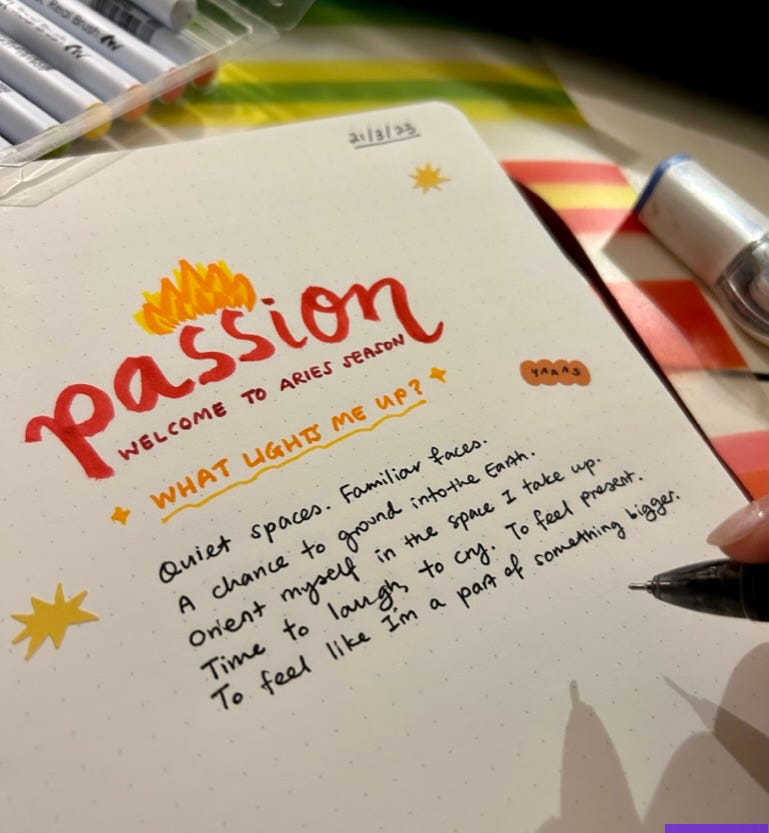 Real Brush
21/3/23
passion
WELCOME TO ARIES SEASON
WHAT LIGHTS ME UP?
YAAAS
Quiet spaces. Familiar faces.
A chance to ground into the Earth.
Orient myself in the space I take up.
Time to laugh, to cry. To feel present.
To feel like I'm a part of something bigger.